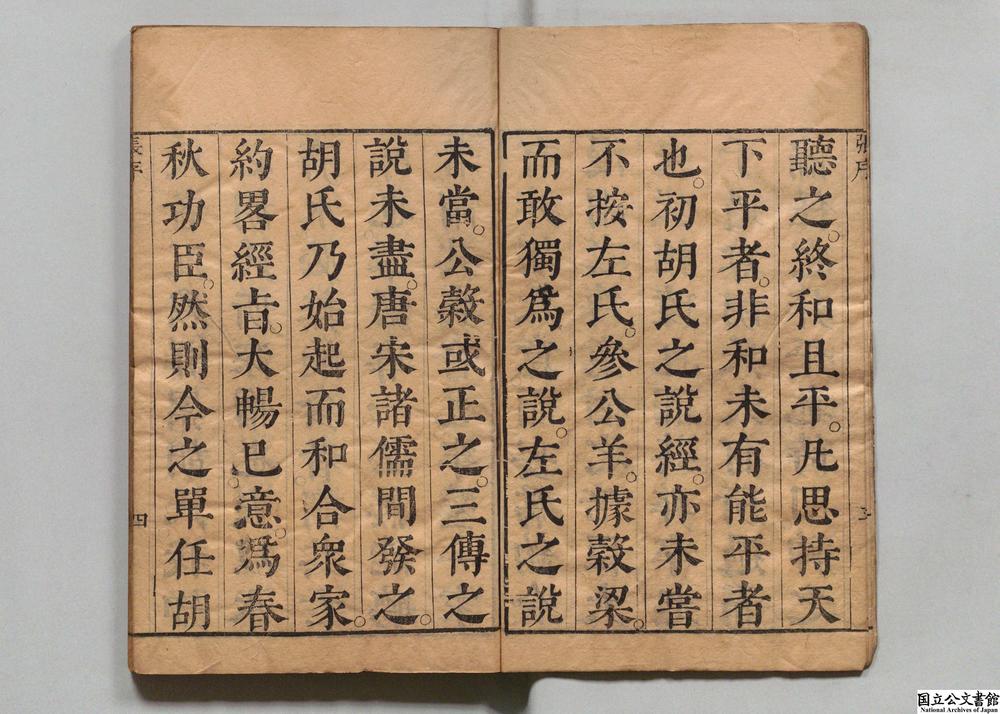 聽之。終和且平。凡思持天
下平者。非和未有能平者
也。初胡氏之說經。亦未嘗
不按左氏。參公羊。據穀梁。
而敢獨爲之說。左氏之說
未當。公穀或正之。三傳之
說未盡。唐宋諸儒間發之。
胡氏乃始起而和合衆家。
約畧經旨。大暢已意。爲春
秋功臣。然則今之單任胡
張序
四
国立公文書館
National Archives of Japan